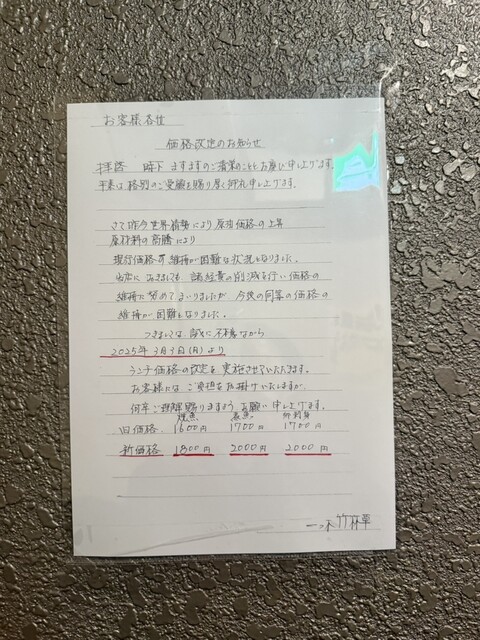 お客様各位
価格改定のお知らせ
拝啓 時下ますますのご清栄のこととお慶び申し上げます。
平素は格別のご愛顧を賜り厚く御礼申し上げます。
さて昨今世界情勢により原油価格の上昇
原材料の高騰により
現行価格 維持が困難な状況となりました。
当店におきましても 諸経費の削減を行い価格の
維持に努めてまいりましたが 今後の同等の価格の
維持が困難となりました。
つきましては、誠に不本意ながら
2025年3月3日(月)より
ランチ価格の改定を実施させていただきます。
お客様にはご負担をお掛けいたしますが、
何卒ご理解賜りますようお願い申し上げます。
焼魚 煮魚 お刺身
旧価格 1600円 1700円 1700円
新価格 1800円 2000円 2000円
一ッ木 竹林草